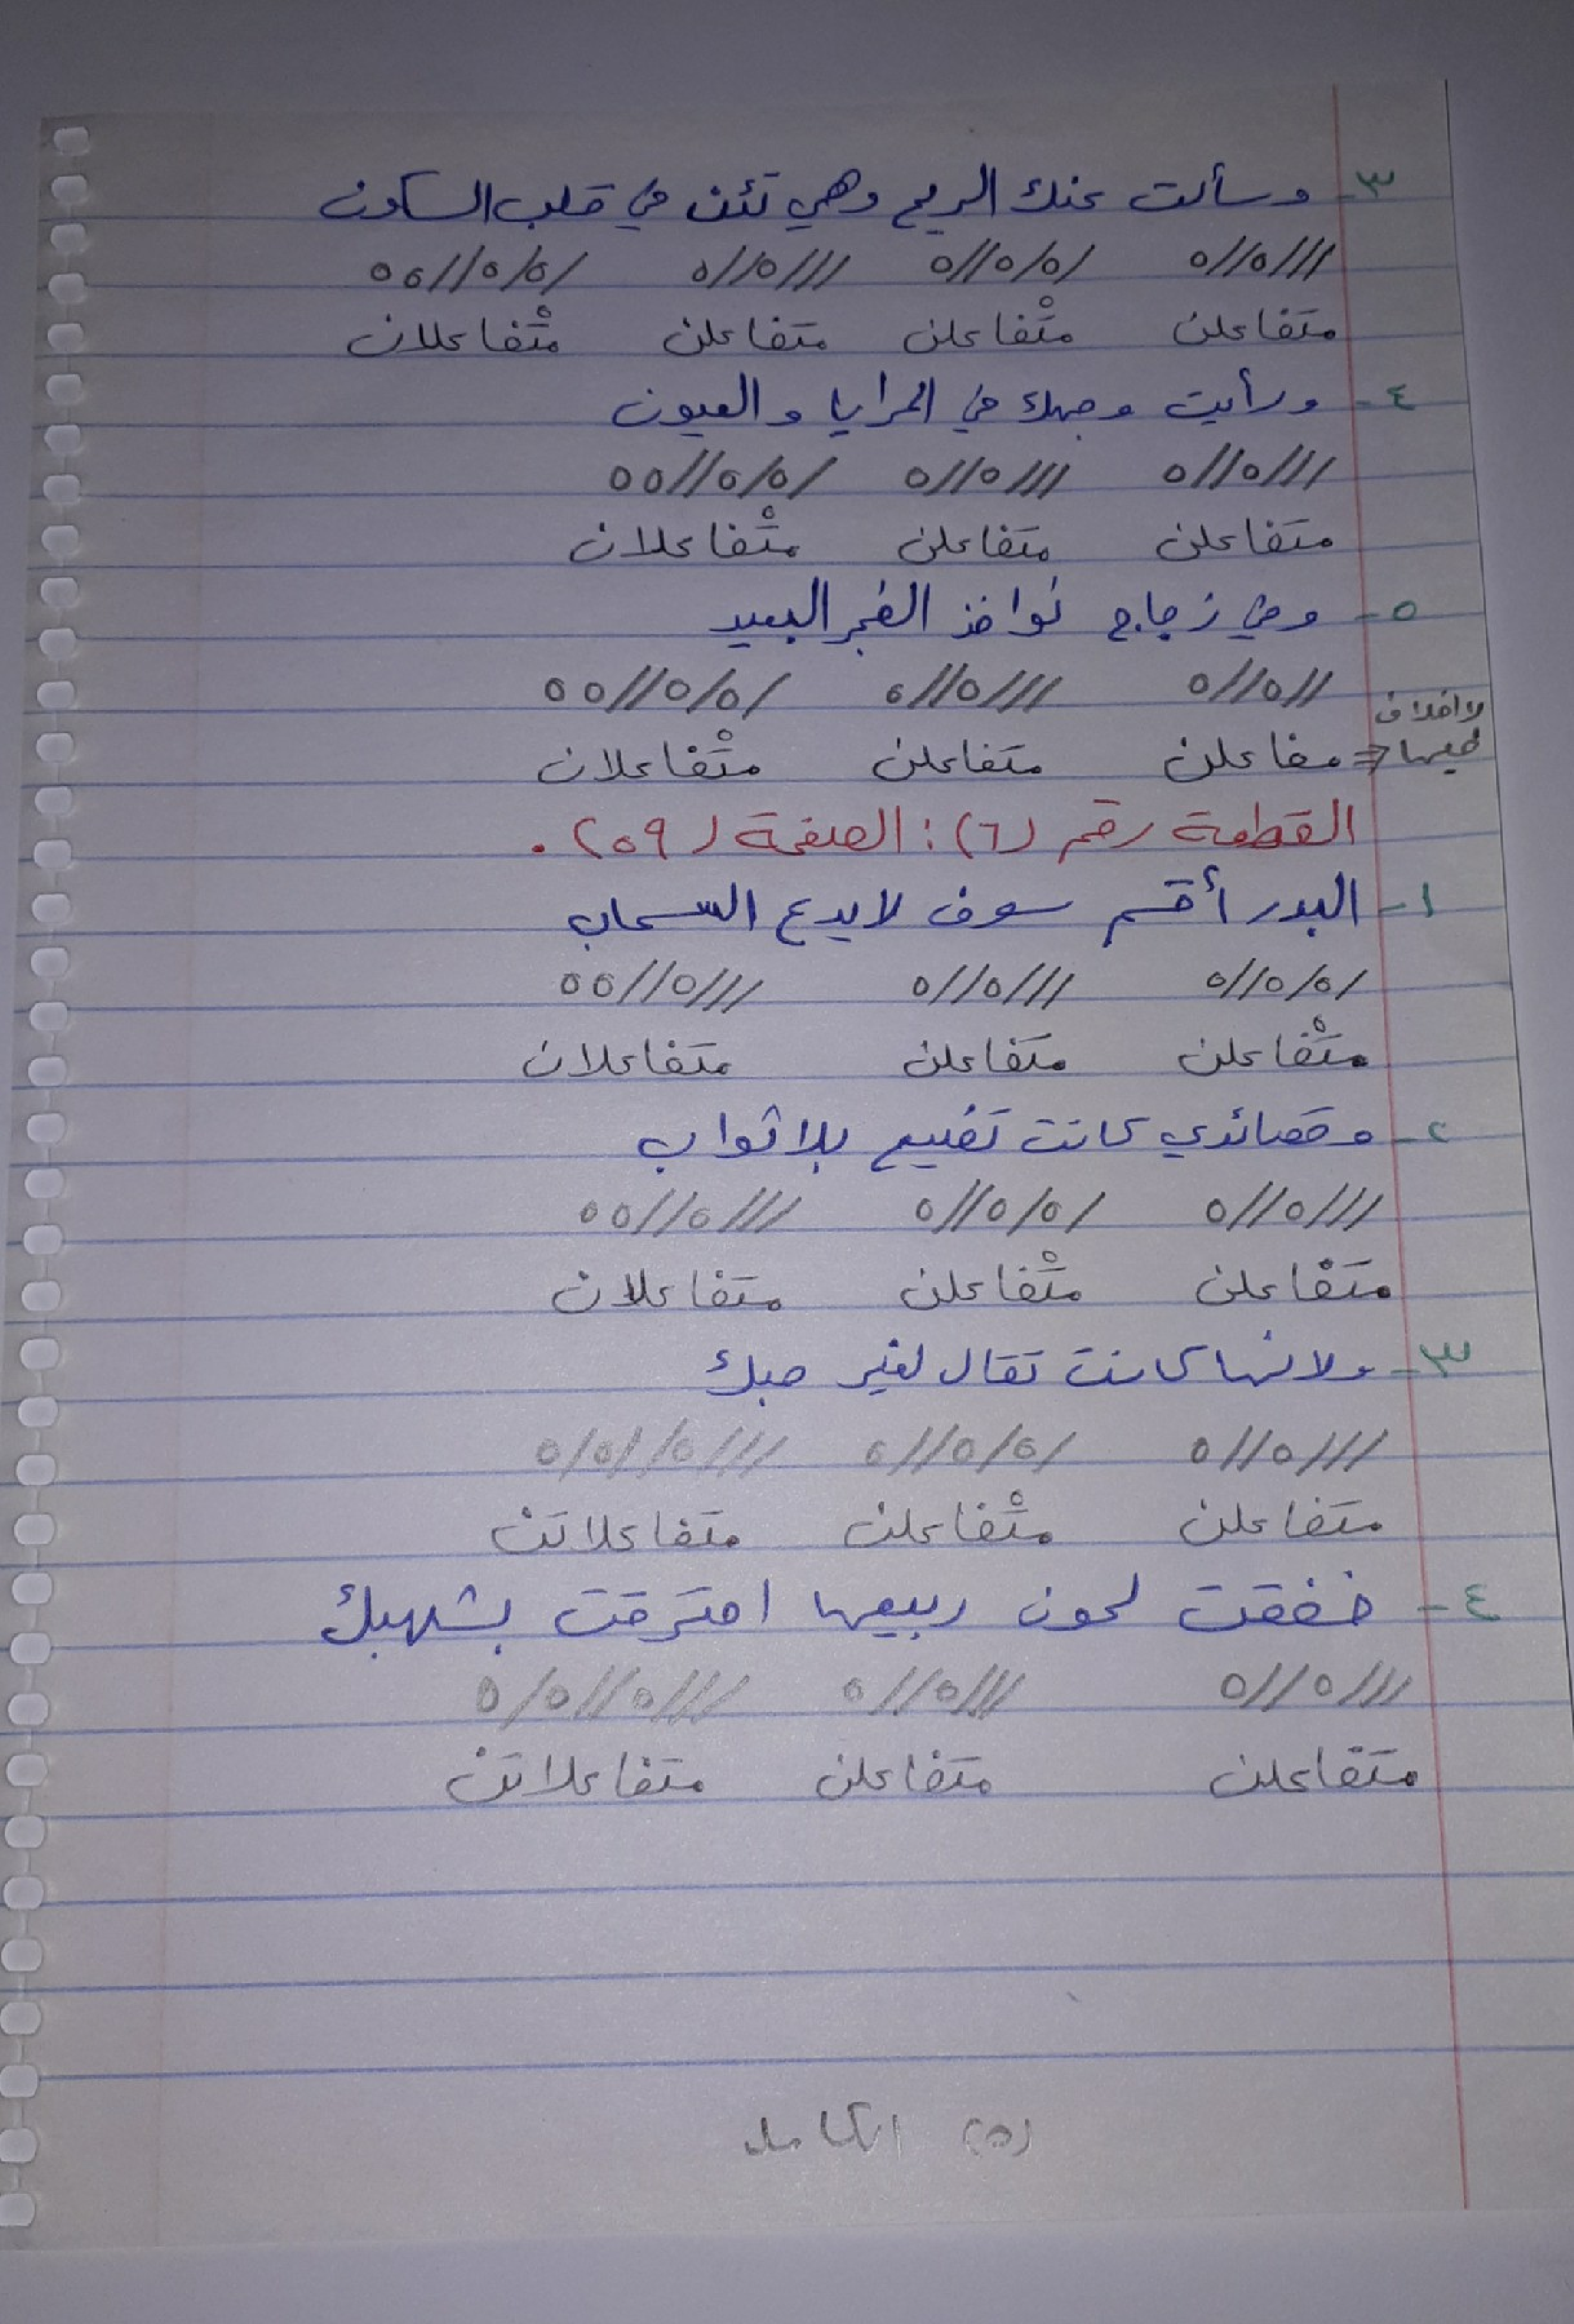 ٣- وسألت عنك الريح وهي تئن في قلب السكون
///0//0 /0/0//0 ///0//0 /0/0//00
متفاعلن متْفاعلن متفاعلن متْفاعلان
٤- ورأيت وجهك في المرايا والعيون
///0//0 ///0//0 /0/0//00
متفاعلن متفاعلن متْفاعلان
٥- وفي زجاج نوافذ الفجر البعيد
//0//0 ///0//0 /0/0//00
لا خلاف فيها => مفاعلن متفاعلن متْفاعلان
القطعة رقم (٦): الصفحة (٥٩).
١- البدر أقسم سوف لا يدع السحاب
/0/0//0 ///0//0 ///0//00
متْفاعلن متفاعلن متفاعلان
٢- وقصائدي كانت تضيع بلا ثواب
///0//0 /0/0//0 ///0//00
متفاعلن متْفاعلن متفاعلان
٣- ولانها كانت تقال لغير حبك
///0//0 /0/0//0 ///0//0/0
متفاعلن متْفاعلن متفاعلاتن
٤- خفقت لحون ربيعها احترقت بشهبك
///0//0 ///0//0 ///0//0/0
متفاعلن متفاعلن متفاعلاتن
(٥) الكامل